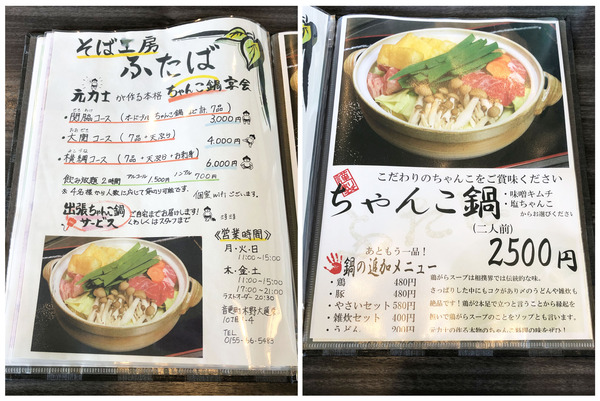 そば工房
ふたば
元力士が作る本格ちゃんこ鍋宴会
・関脇コース(オードブル ちゃんこ鍋 〆 計.7品)
3,000円
・大関コース(7品+天ぷら)
4,000円
・横綱コース(7品+天ぷら+お刺身)
6,000円
飲み放題 2時間 アルコール 1,500円 ノンアル 700円
個室wifiございます。
出張ちゃんこ鍋
サービス
ご自宅までお届けします!
くわしくはスタッフまで
《営業時間》
月・火・日
11:00~15:00
木・金・土
11:00~15:00
17:00~21:00
ラストオーダー20:30
音更町木野大通
TEL
0155-66-5483
こだわりのちゃんこをご賞味ください
ちゃんこ鍋
・味噌キムチ
・塩ちゃんこ
からお選びください
(二人前)
2500円
あともう一品!
鍋の追加メニュー
・鶏 480円
・豚 480円
・やさいセット 580円
・雑炊セット 400円
・うどん 200円
鶏がらスープは相撲界では伝統的な味。
さっぱりした中にもコクがあり〆のうどんや雑炊も
絶品です!鶏が2本足で立つと言うことから縁起を
担いで鶏がらスープのことをソップとも言います。
元力士の作る本物のちゃんこ料理の味をぜひ!